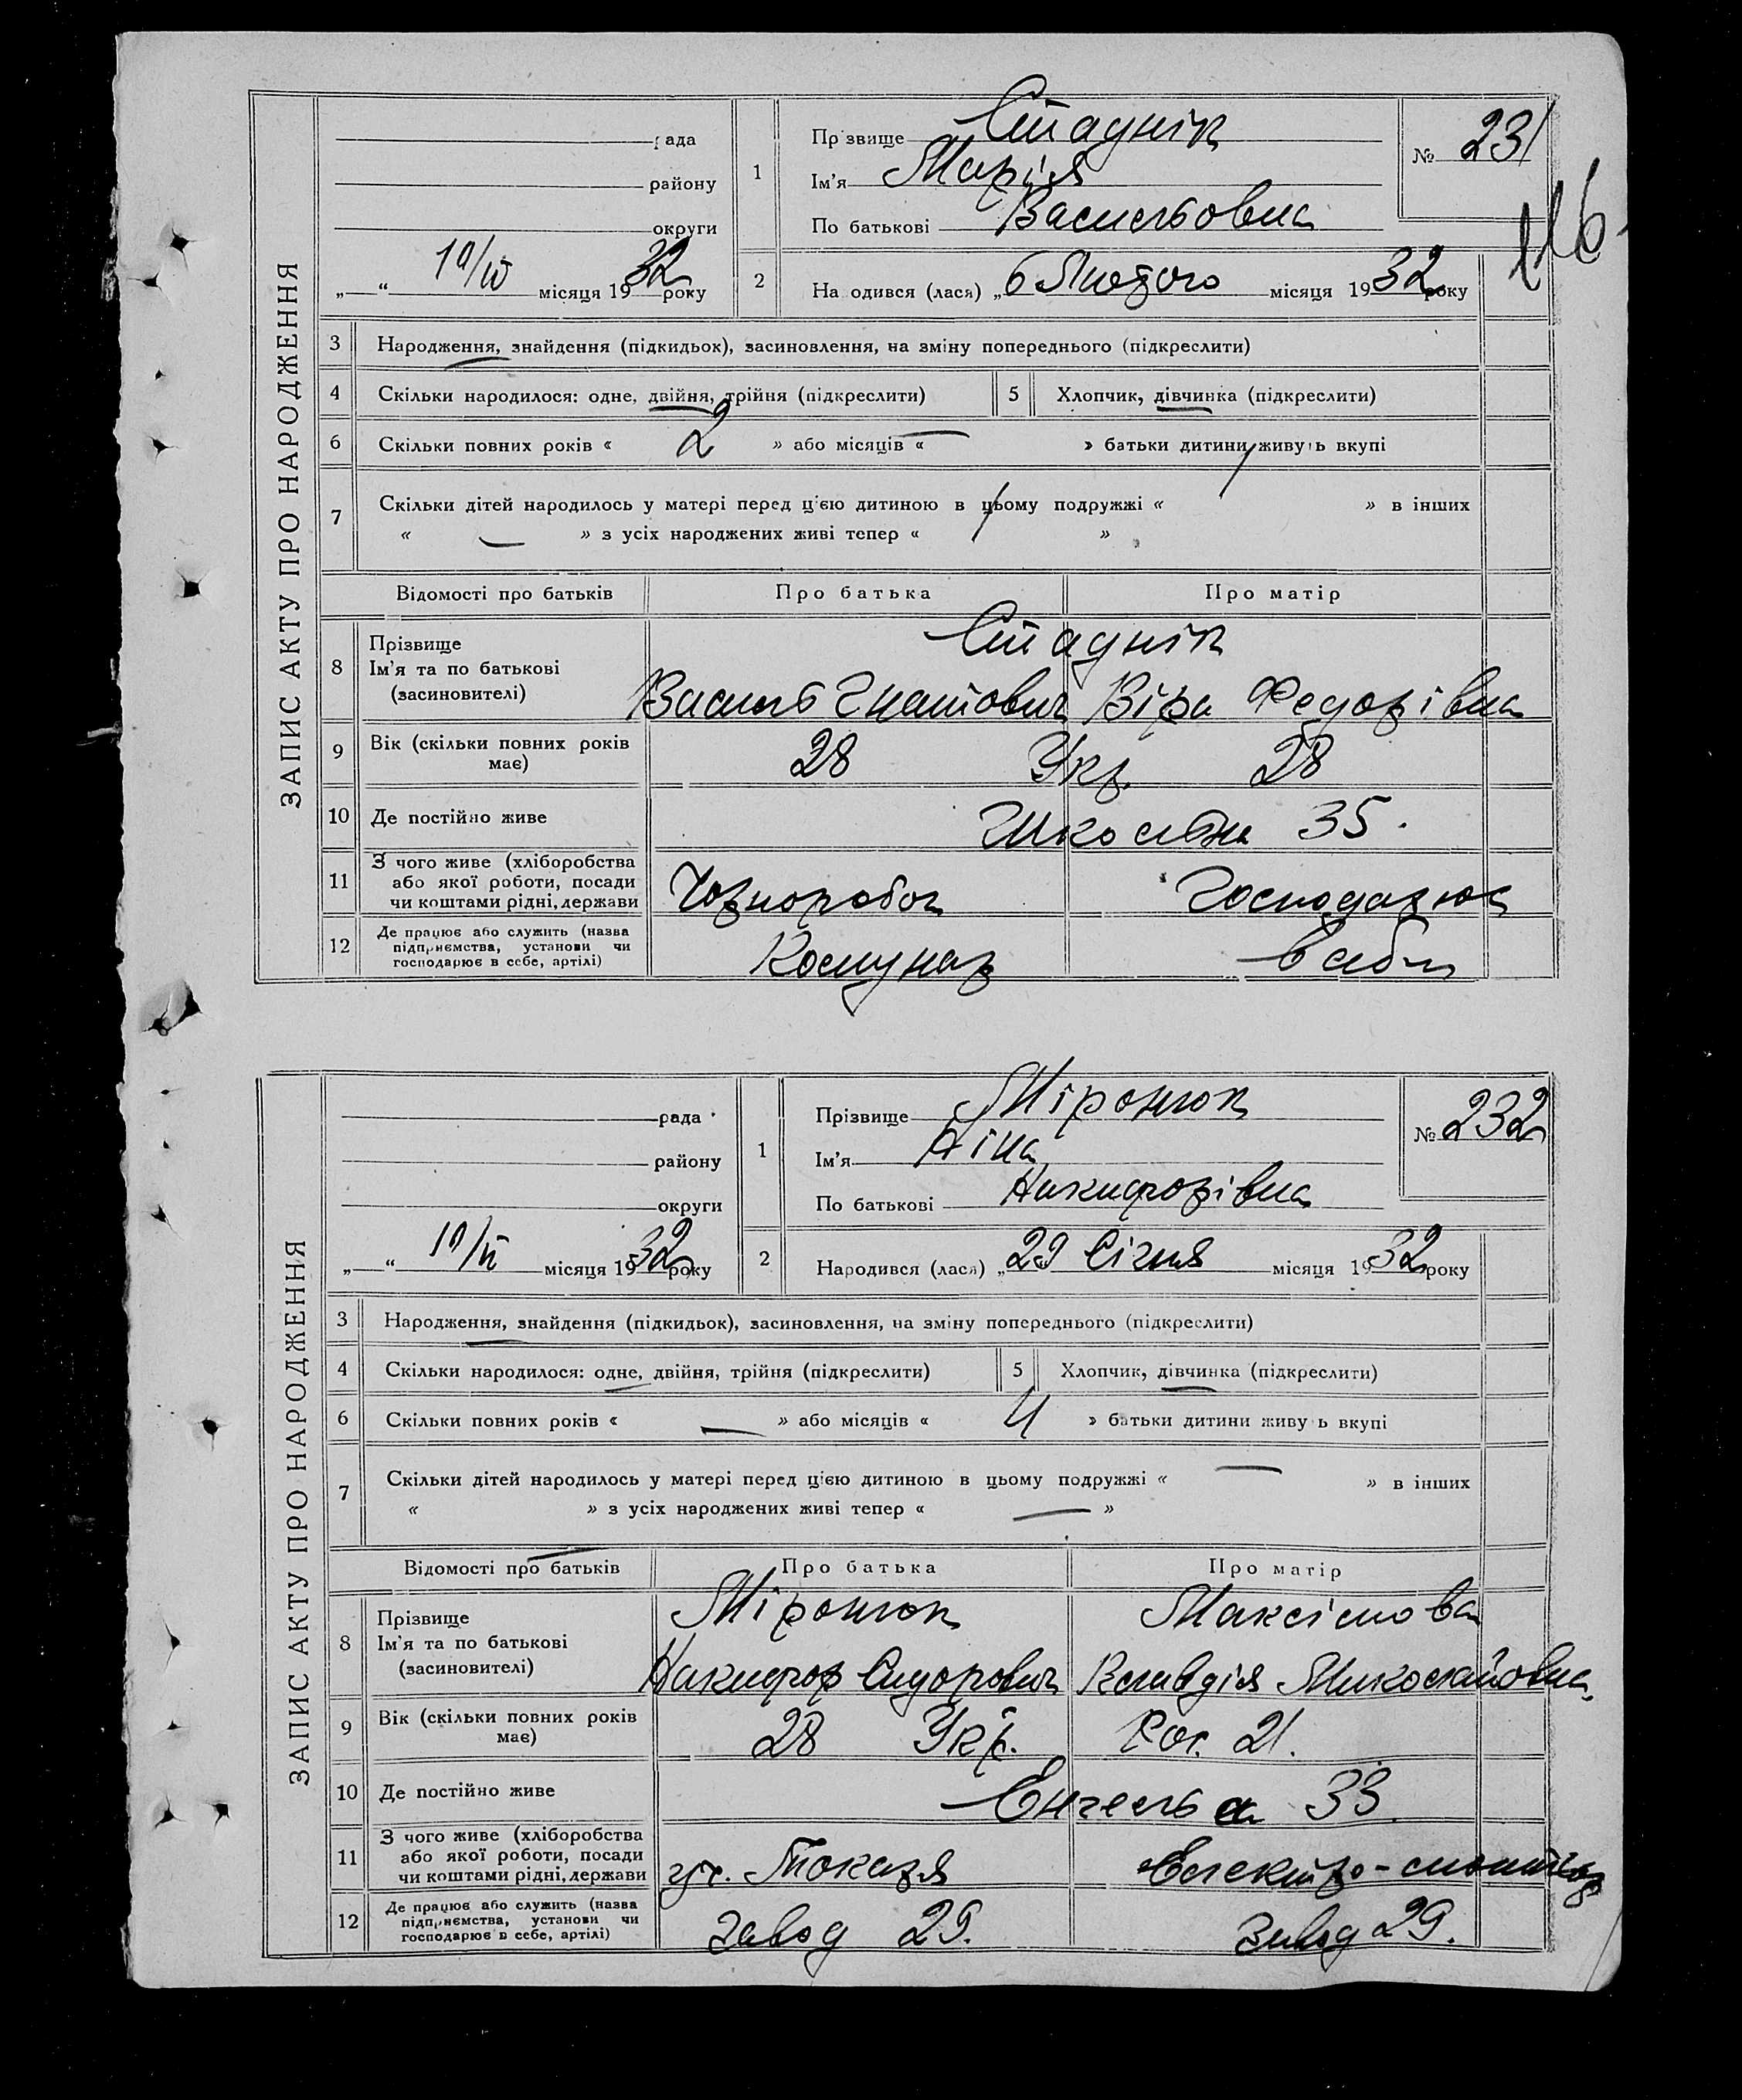 ЗАПИС АКТУ ПРО НАРОДЖЕННЯ
рада
району
округи
„ “ 10/II місяця 1932 року
1 Прізвище Стаднік
Ім'я Марія
По батькові Васильовна
№ 231
116
2 Народився (лася) „6 Лютого місяця 1932 року
3 Народження, знайдення (підкидьок), засиновлення, на зміну попереднього (підкреслити)
4 Скільки народилося: одне, двійня, трійня (підкреслити) 5 Хлопчик, дівчинка (підкреслити)
6 Скільки повних років « 2 » або місяців « — » батьки дитини живуть вкупі
7 Скільки дітей народилось у матері перед цією дитиною в цьому подружжі « 1 » в інших
« — » з усіх народжених живі тепер « 1 »
Відомості про батьків Про батька Про матір
8 Прізвище Стаднік
Ім'я та по батькові Василь Гнатович Віра Федорівна
(засиновителі)
9 Вік (скільки повних років має) 28 Укр. 28
10 Де постійно живе Шкільна 35.
11 З чого живе (хліборобства або якої роботи, посади чи коштами рідні, держави Чорнороб Господарює
12 Де працює або служить (назва підприємства, установи чи господарює в себе, артілі) Комунар в себе
ЗАПИС АКТУ ПРО НАРОДЖЕННЯ
рада
району
округи
„ “ 10/II місяця 1932 року
1 Прізвище Міронюк
Ім'я Ніна
По батькові Никифорівна
№ 232
2 Народився (лася) „29 Січня місяця 1932 року
3 Народження, знайдення (підкидьок), засиновлення, на зміну попереднього (підкреслити)
4 Скільки народилося: одне, двійня, трійня (підкреслити) 5 Хлопчик, дівчинка (підкреслити)
6 Скільки повних років « — » або місяців « » батьки дитини живуть вкупі
7 Скільки дітей народилось у матері перед цією дитиною в цьому подружжі « — » в інших
« » з усіх народжених живі тепер « — »
Відомості про батьків Про батька Про матір
8 Прізвище Міронюк Максімова
Ім'я та по батькові Никифор Сидорович Клавдія Миколайовна
(засиновителі)
9 Вік (скільки повних років має) 28 Укр. Рос. 21.
10 Де постійно живе Енгельса 33
11 З чого живе (хліборобства або якої роботи, посади чи коштами рідні, держави уч. Токаря Електро-монтьор
12 Де працює або служить (назва підприємства, установи чи господарює в себе, артілі) Завод 29. Завод 29.